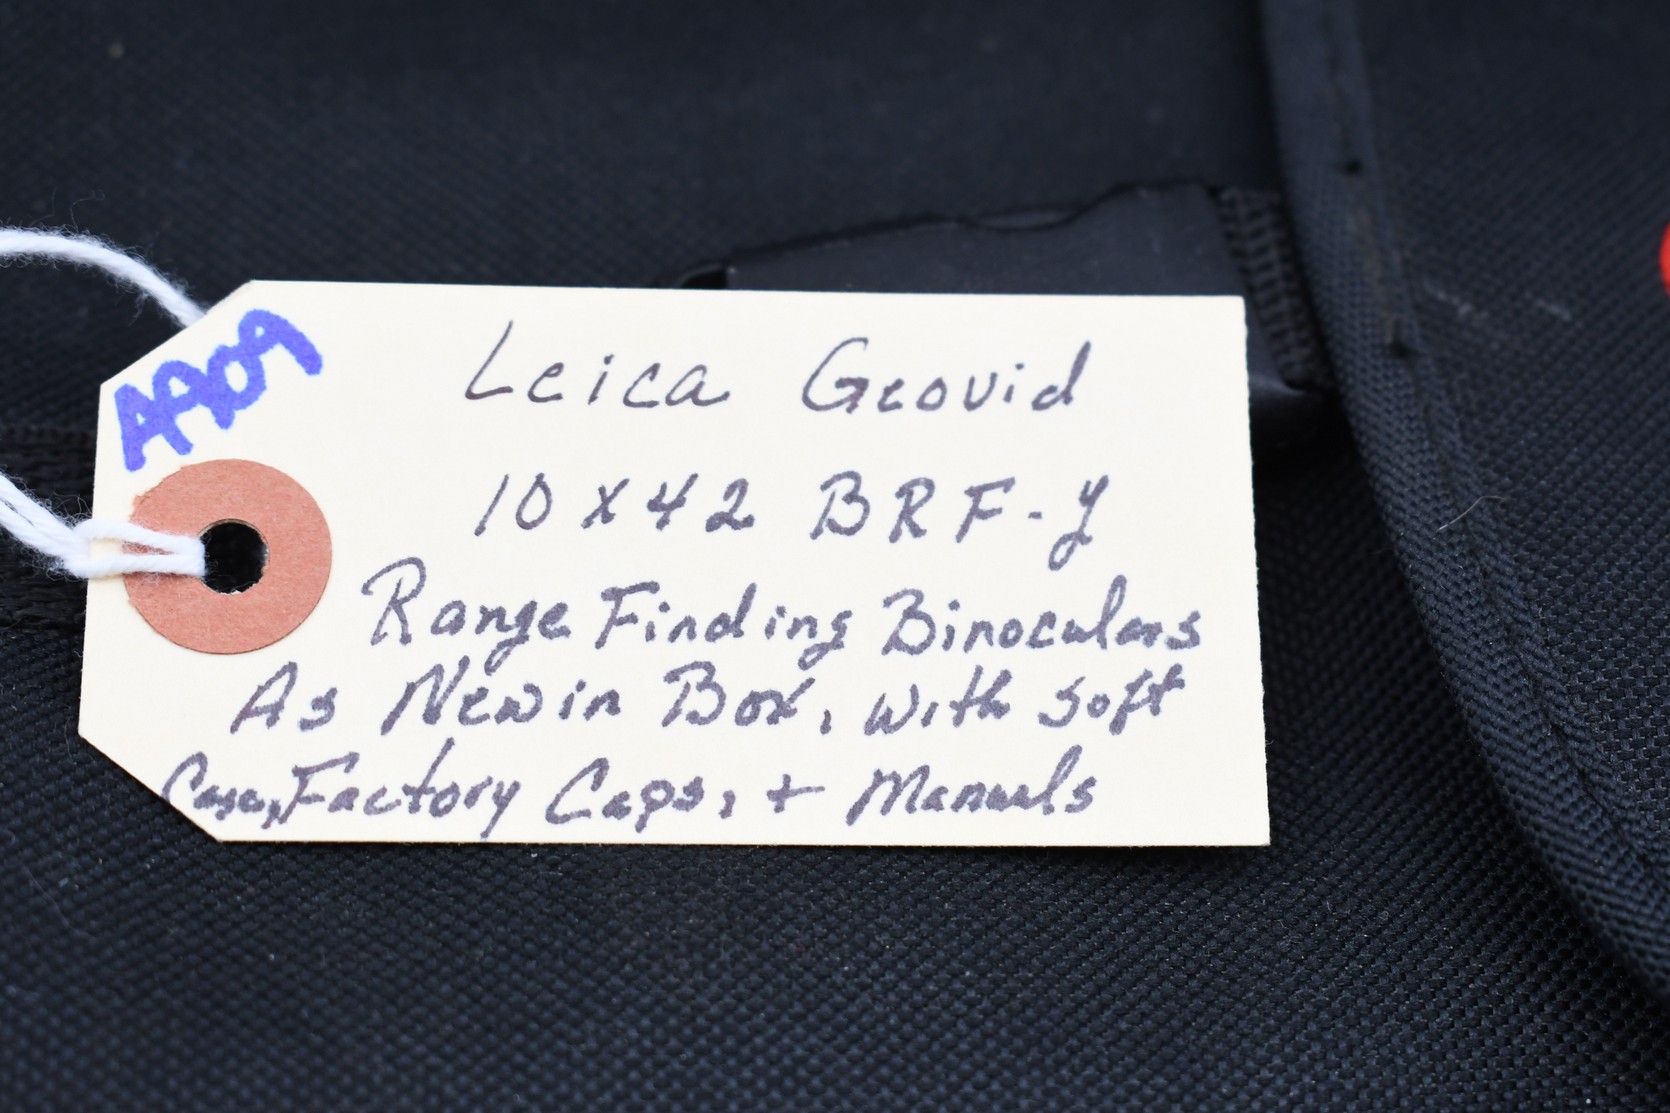 AA09
Leica Geovid
10x42 BRF-Y
Range Finding Binoculars
As New in Box, with soft
Case, Factory Caps, + Manuals